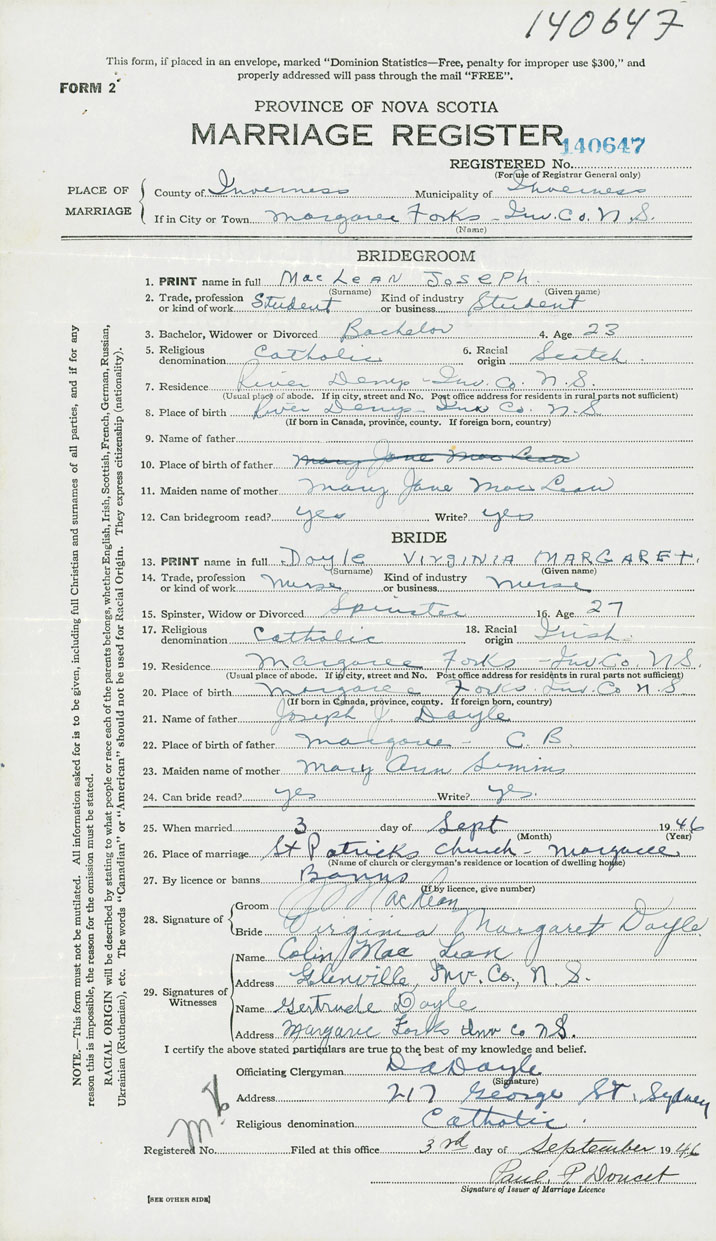 140647
This form, if placed in an envelope, marked "Dominion Statistics—Free, penalty for improper use $300," and
properly addressed will pass through the mail "FREE".
FORM 2
PROVINCE OF NOVA SCOTIA
MARRIAGE REGISTER
140647
REGISTERED No.
(For use of Registrar General only)
PLACE OF MARRIAGE
County of Inverness Municipality of Inverness
If in City or Town Margaree Forks - Inv. Co. N.S.
(Name)
BRIDEGROOM
1. PRINT name in full MacLean Joseph.
(Surname) (Given name)
2. Trade, profession or kind of work Student Kind of industry or business Student
3. Bachelor, Widower or Divorced Bachelor 4. Age 23
5. Religious denomination Catholic 6. Racial origin Scotch.
7. Residence River Denys - Inv. Co. N.S.
(Usual place of abode. If in city, street and No. Post office address for residents in rural parts not sufficient)
8. Place of birth River Denys - Inv Co. N.S
(If born in Canada, province, county. If foreign born, country)
9. Name of father
10. Place of birth of father Mary Jane MacLean
11. Maiden name of mother Mary Jane MacLean
12. Can bridegroom read? yes Write? yes
BRIDE
13. PRINT name in full Doyle VIRGINIA MARGARET.
(Surname) (Given name)
14. Trade, profession or kind of work Nurse Kind of industry or business Nurse
15. Spinster, Widow or Divorced Spinster 16. Age 27
17. Religious denomination Catholic 18. Racial origin Irish.
19. Residence Margaree Forks - Inv Co. N.S.
(Usual place of abode. If in city, street and No. Post office address for residents in rural parts not sufficient)
20. Place of birth Margaree Forks. Inv. Co N.S.
(If born in Canada, province, county. If foreign born, country)
21. Name of father Joseph J. Doyle
22. Place of birth of father Margaree - C.B.
23. Maiden name of mother Mary Ann
24. Can bride read? yes Write? yes.
25. When married 3 day of Sept 1946
(Month) (Year)
26. Place of marriage St Patricks Church - Margaree
(Name of church or clergyman's residence or location of dwelling house)
27. By licence or banns Banns
(If by licence, give number)
28. Signature of
Groom J. MacLean
Bride Virginia Margaret Doyle
29. Signatures of Witnesses
Name Colin MacLean
Address Glenville, Inv. Co., N.S.
Name Gertrude Doyle
Address Margaree Forks Inv Co N.S.
I certify the above stated particulars are true to the best of my knowledge and belief.
Officiating Clergyman D a Doyle
(Signature)
Address 217 George St, Sydney
Religious denomination Catholic.
Registered No. Filed at this office 3rd day of September 1946
Paul P Doucet
Signature of Issuer of Marriage Licence
[SEE OTHER SIDE]
NOTE.—This form must not be mutilated. All information asked for is to be given, including full Christian and surnames of all parties, and if for any
reason this is impossible, the reason for the omission must be stated.
RACIAL ORIGIN will be described by stating to what people or race each of the parents belongs, whether English, Irish, Scottish, French, German, Russian,
Ukrainian (Ruthenian), etc. The words "Canadian" or "American" should not be used for Racial Origin. They express citizenship (nationality).